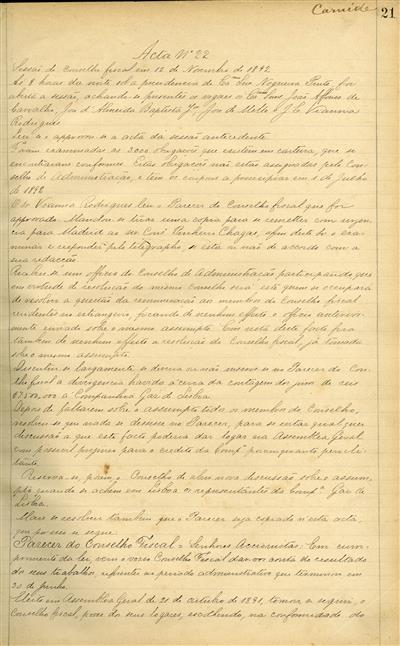 Carnide
21
Acta Nº 22
Sessão de Conselho fiscal em 12 de Novembro de 1892
Às 8 horas da noite sob a presidencia do Exmo Snr Nogueira Pinto, foi
aberta a sessão, achando-se presentes os vogaes os Exmos Snrs José Affonso de
Carvalho, José d'Almeida Baptista Jor José de Mello e J. C. Vianna
Rodrigues
Leu-se e approvou-se a acta da sessão antecedente.
Foram examinadas as 2000 obrigações que existem em carteira, que se
encontraram conformes. Estas obrigações não estão assignadas pelo Con-
selho de Administração, e tem os coupons a principiar em 1 de Julho
de 1892
O Sr. Vianna Rodrigues leu o Parecer do Conselho fiscal que foi
approvado. Mandou-se tirar uma copia para se remetter com urgen-
cia para Madrid ao Sr. Pinheiro Chagas, afim deste Sr. o exa-
minar e responder pelo telegrapho, se está ou não de accordo com a
sua redacção
Recebeu-se um officio do Conselho de Administração participando que
em virtude de resolução do mesmo Conselho será este quem se occupará
de resolver a questão da remuneração ao membro do Conselho fiscal
residentes no estrangeiro, ficando de nenhum effeito o officio anterior-
mente enviado sobre o mesmo assumpto. Em vista deste facto fica
tambem de nenhum effeito a resolução do Conselho fiscal, já tomada
sobre o mesmo assumpto.
Discutiu-se largamente, se devia ou não inserir-se no Parecer do Con-
selho fiscal a divergencia havida ácerca da contagem dos juros de reis
67.500,000 á Companhia Gaz de Lisboa.
Depois de fallarem sobre o assumpto todos os membros do Conselho,
resolveu-se que nada se dissesse no Parecer, para se evitar qualquer
discussão a que este facto poderia dar logar na Assemblea Geral
com possivel prejuizo para o credito da Compª
Reserva-se, porem, o Conselho de abrir nova discussão sobre assum-
pto quando se achem em Lisboa os representantes da Compª Gaz de
Lisboa.
Mais se resolveu tambem que o Parecer seja copiado n'esta acta,
Parecer do Conselho Fiscal = Senhores Accionistas: Em cum-
primento da lei, vem o vosso Conselho Fiscal dar-vos conta do resultado
dos seus trabalhos referentes ao periodo administrativo que terminou em
30 de Junho.
Eleito em Assemblea Geral de 21 de outubro de 1891, tomou em seguida, o
Conselho fiscal, posse dos seus logares, escolhendo, na conformidade do